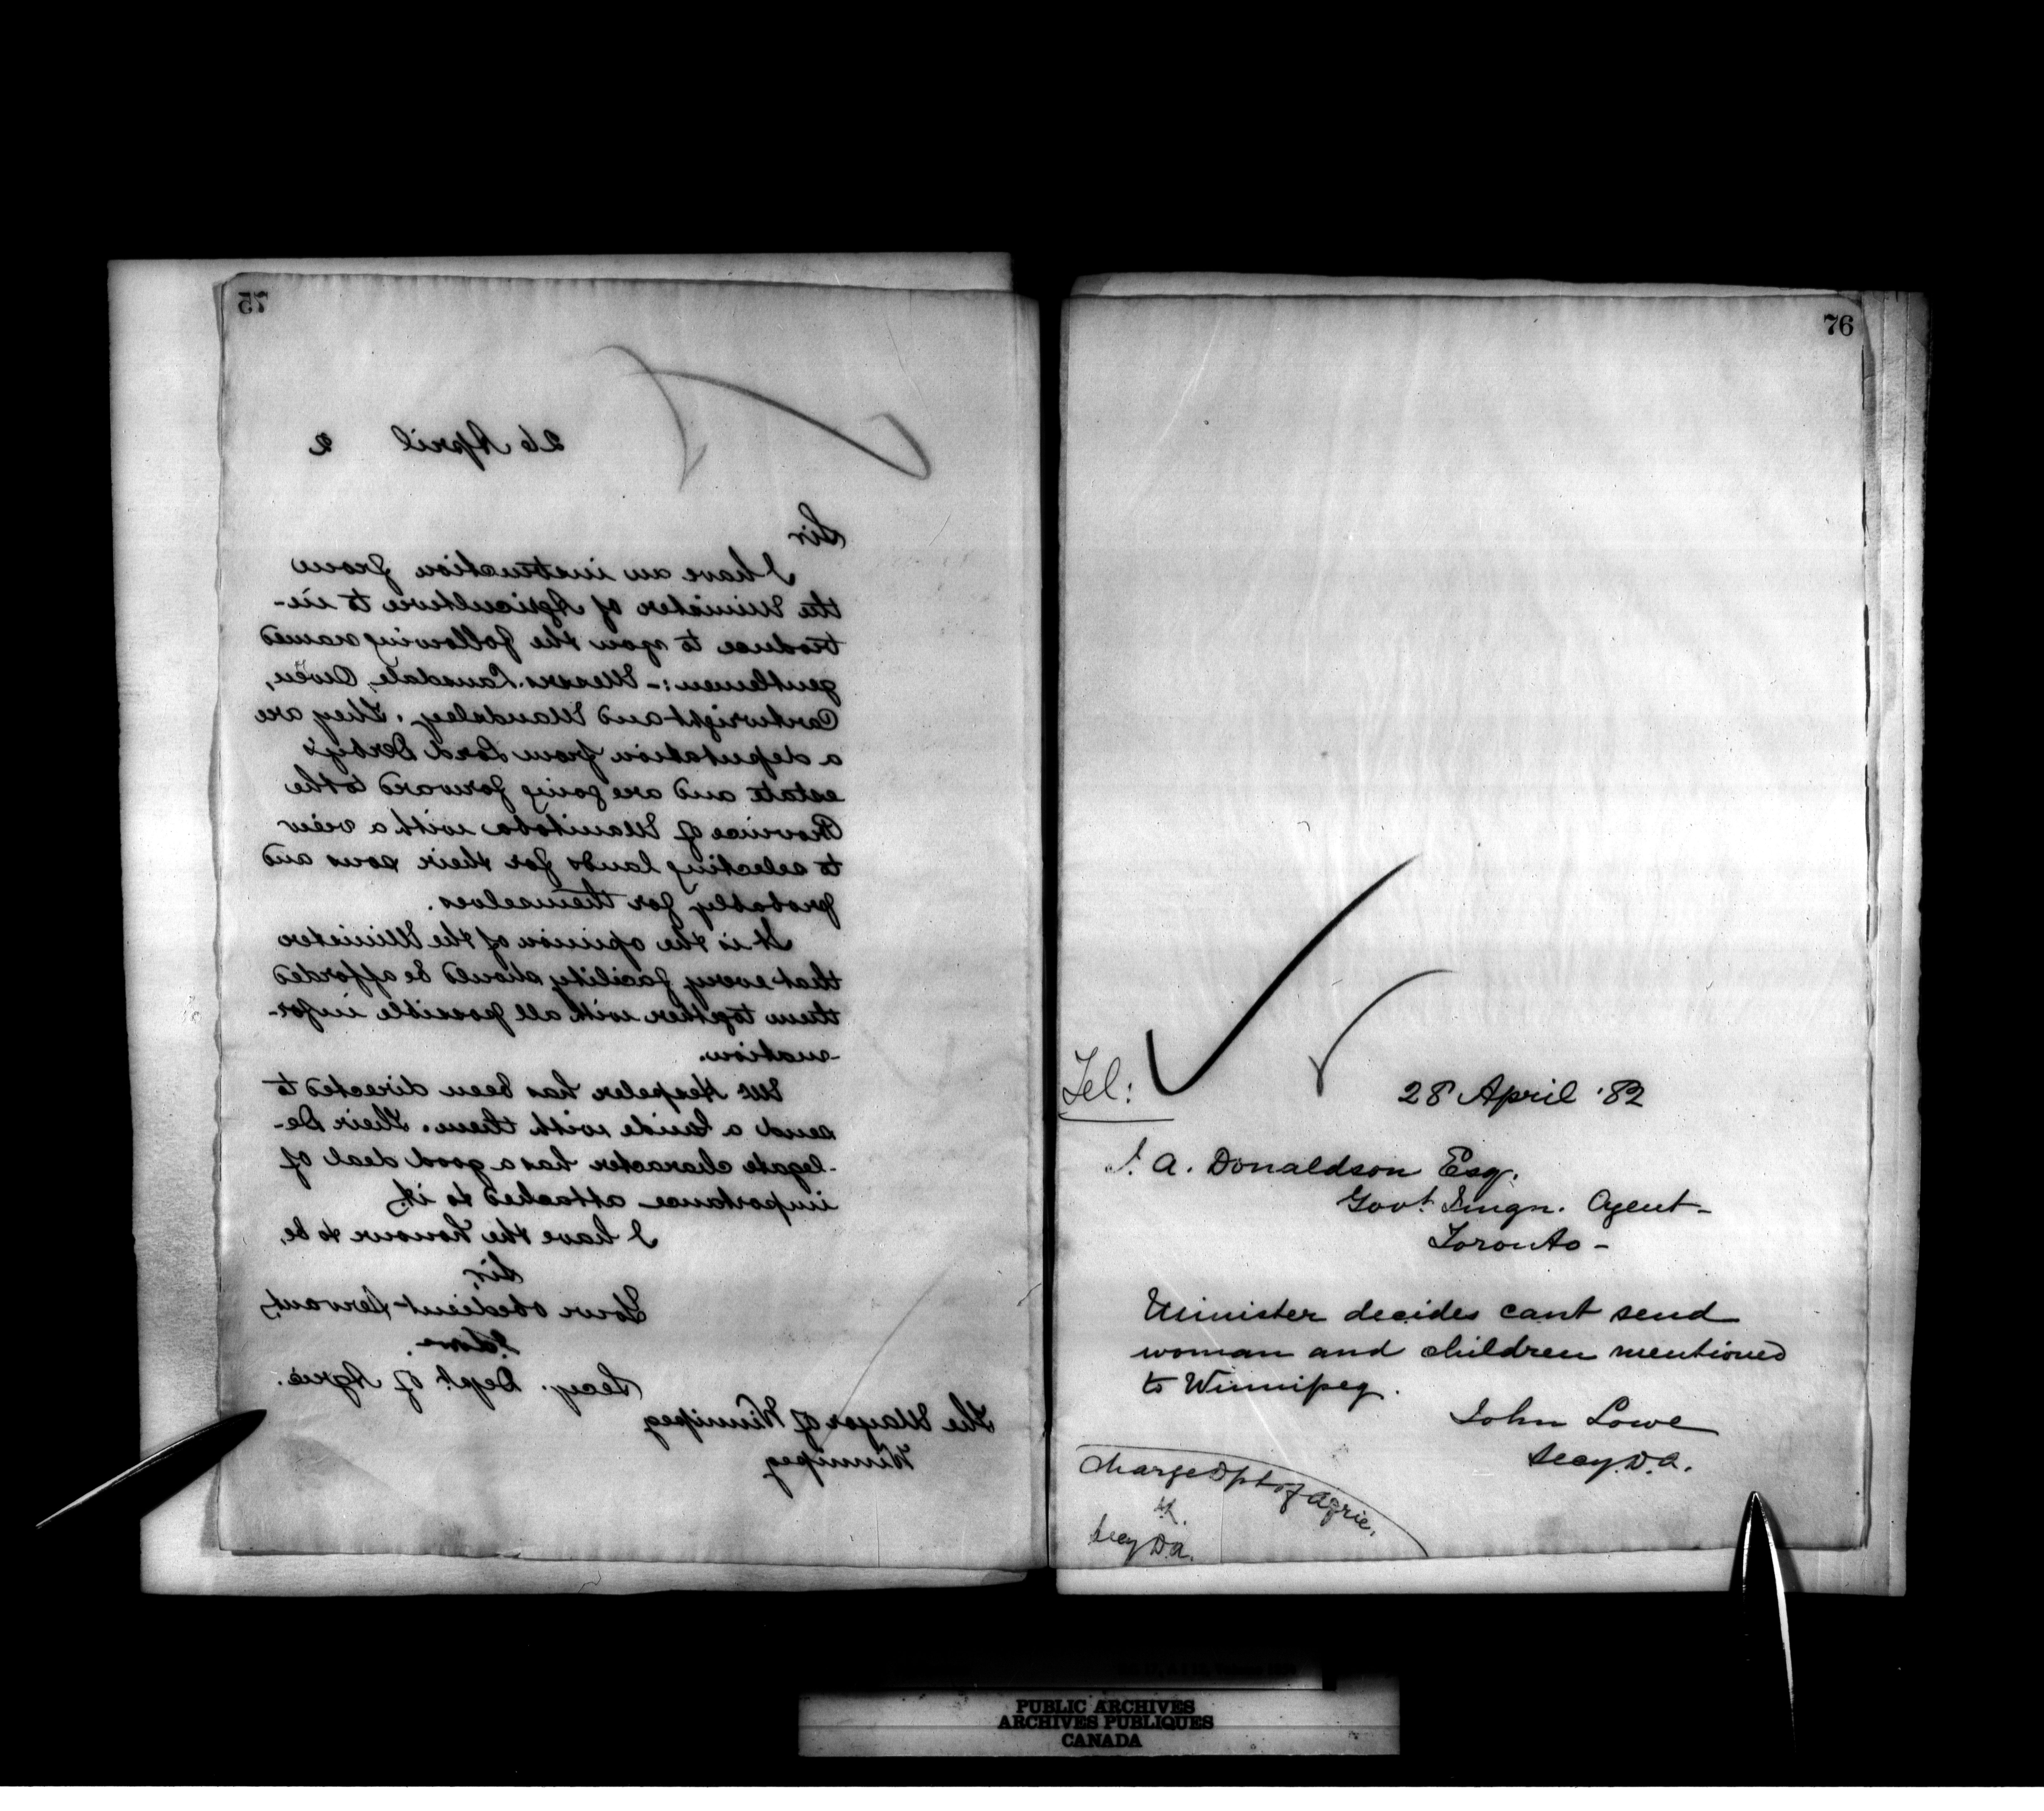 75
26 April 2
Sir
I have an instruction from
the Minister of Agriculture to in-
troduce to you the following named
gentlemen:- Messrs. Lansdale, Owen,
Cartwright and Mandsley. They are
a deputation from Lord Derby's
estate and are going forward to the
Province of Manitoba with a view
to selecting lands for their sons and
probably for themselves.
It is the opinion of the Minister
that every facility should be afforded
them together with all possible infor-
-mation.
Mr Hespeler has been directed to
send a Guide with them. Their De-
-legate character has a good deal of
importance attached to it.
I have the honour to be,
Sir,
Your obedient Servant,
Secy. Dept. of Agric.
The Mayor of Winnipeg
Winnipeg
76
Tel:
28 April '82
J. A. Donaldson Esq.
Govt. Imgn. Agent-
Toronto-
Minister decides cant send
woman and children mentioned
to Winnipeg.
John Lowe
Secy. D.A.
Charge Dpt of Agric.
Secy D.A.
PUBLIC ARCHIVES
ARCHIVES PUBLIQUES
CANADA